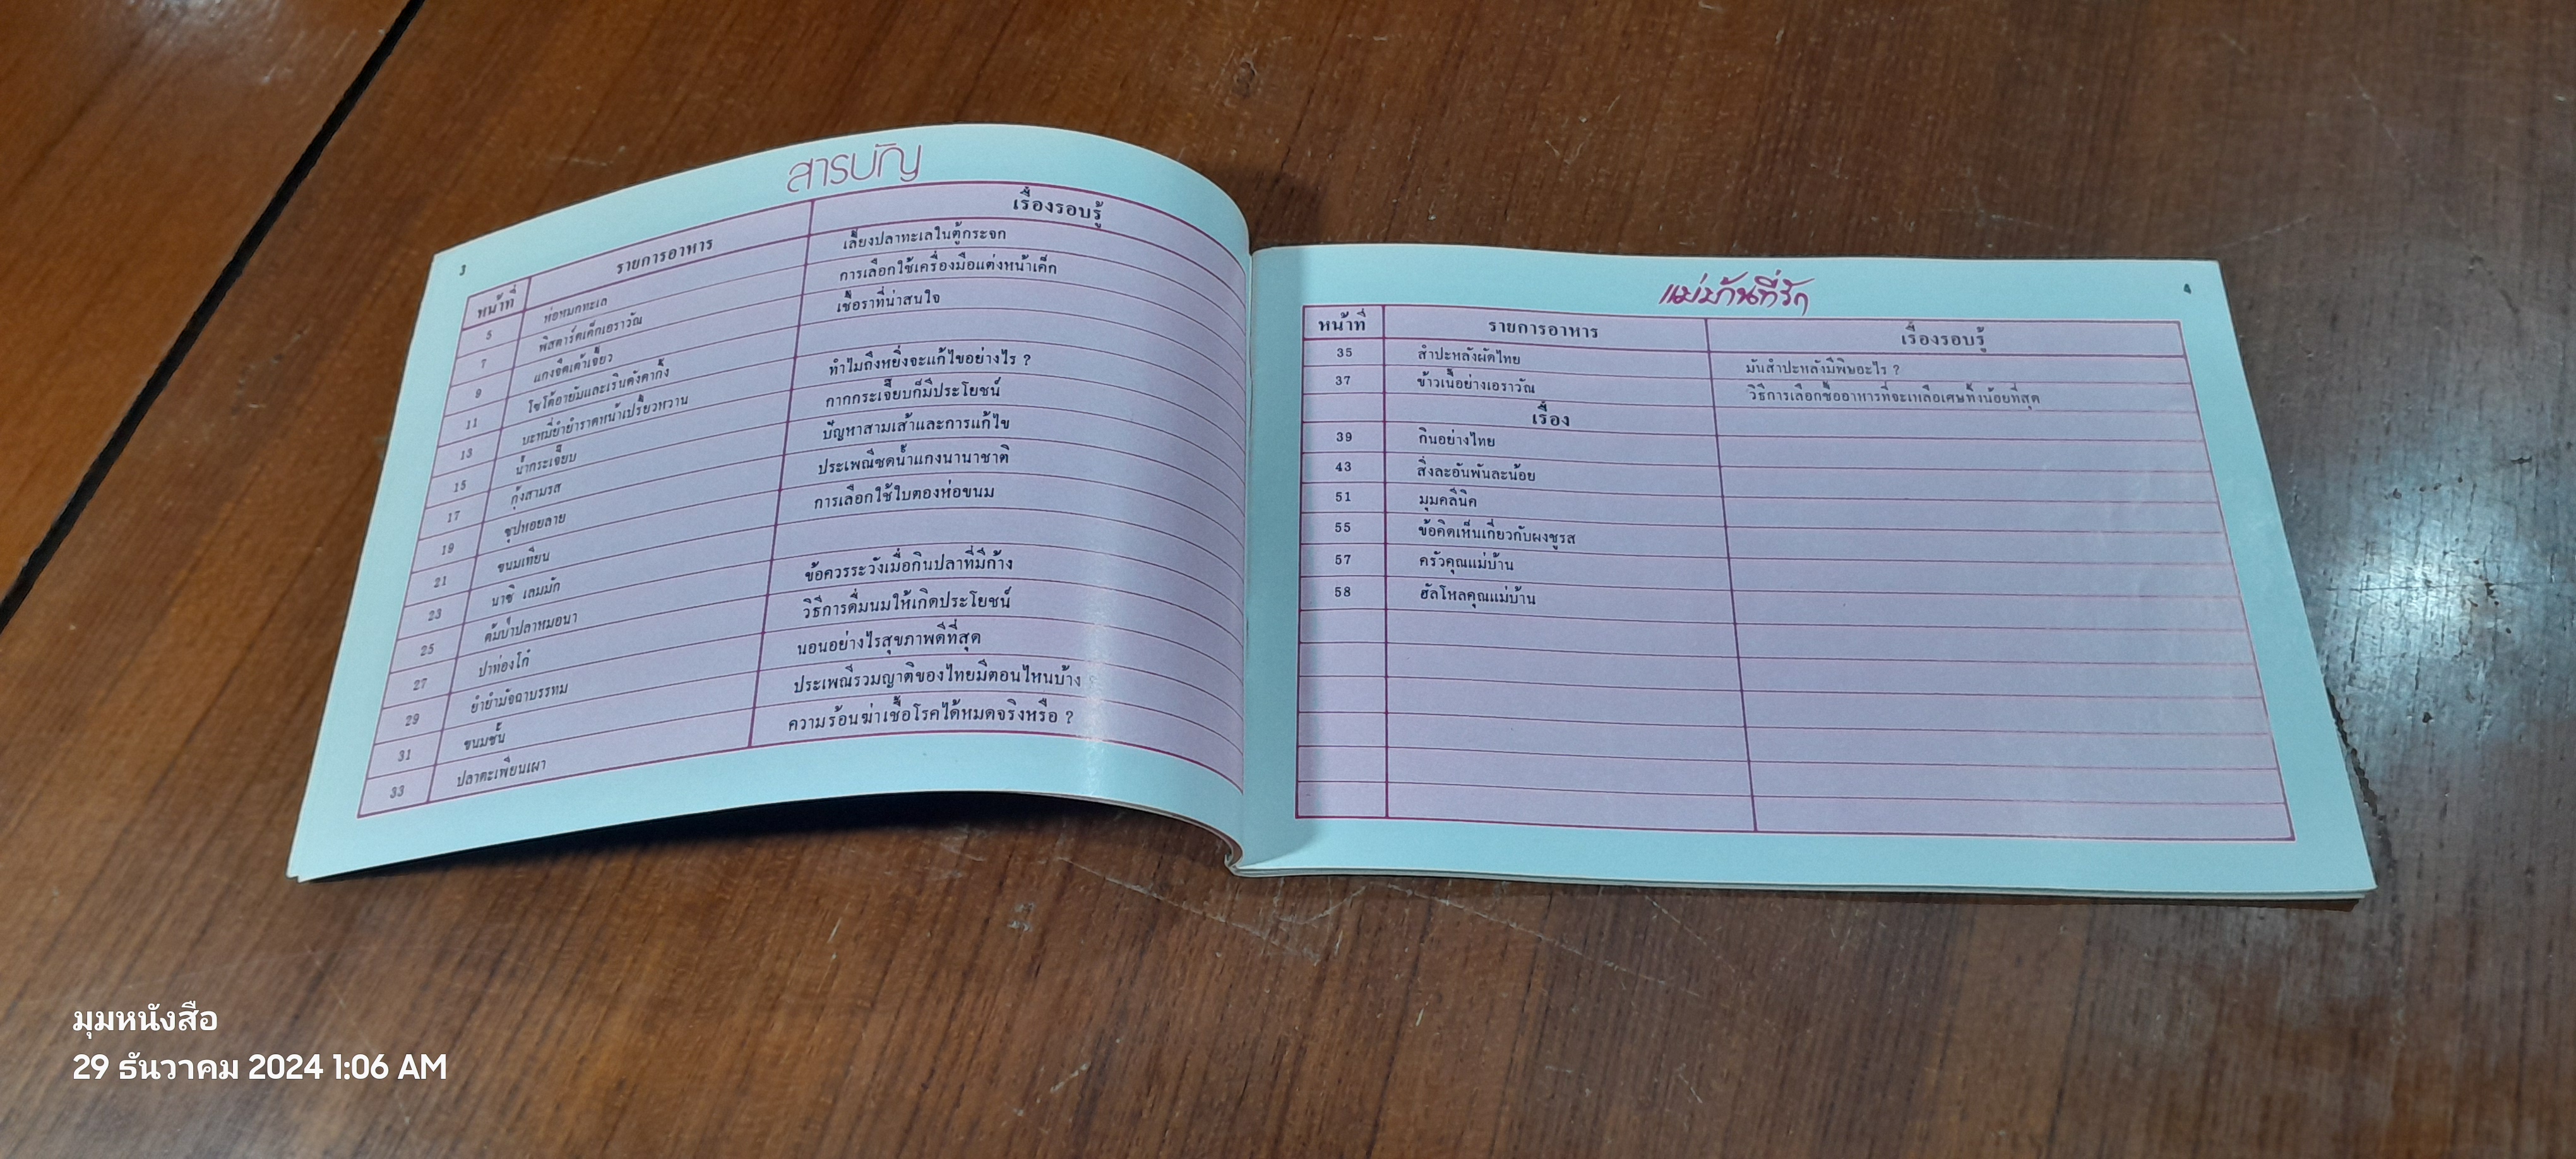 3
สารบัญ
หน้าที่ รายการอาหาร เรื่องรอบรู้
5 ห่อหมกทะเล เลี้ยงปลาทะเลในตู้กระจก
7 พิสตาร์ตเค็กเอราวัณ การเลือกใช้เครื่องมือแต่งหน้าเค็ก
9 แกงจืดเต้าเจี้ยว เชื้อราที่น่าสนใจ
11 ไซโต้อายัมและเรินดังดากิ้ง
13 บะหมี่ยำยำราดหน้าเปรี้ยวหวาน ทำไมถึงหยิ่งจะแก้ไขอย่างไร ?
15 น้ำกระเจี๊ยบ กากกระเจี๊ยบก็มีประโยชน์
17 กุ้งสามรส ปัญหาสามเส้าและการแก้ไข
19 ซุปหอยลาย ประเพณีซดน้ำแกงนานาชาติ
21 ขนมเทียน การเลือกใช้ใบตองห่อขนม
23 นาซิ เลมมัก
25 ต้มยำปลาหมอนา ข้อควรระวังเมื่อกินปลาที่มีก้าง
27 ปาท่องโก๋ วิธีการดื่มนมให้เกิดประโยชน์
29 ยำยำมัจฉาบรรทม นอนอย่างไรสุขภาพดีที่สุด
31 ขนมชั้น ประเพณีรวมญาติของไทยมีตอนไหนบ้าง
33 ปลาตะเพียนเผา ความร้อนฆ่าเชื้อโรคได้หมดจริงหรือ ?
แม่บ้านที่รัก
4
หน้าที่ รายการอาหาร เรื่องรอบรู้
35 สำปะหลังผัดไทย มันสำปะหลังมีพิษอะไร ?
37 ข้าวเนื้อย่างเอราวัณ วิธีการเลือกซื้ออาหารที่จะเหลือเศษทิ้งน้อยที่สุด
เรื่อง
39 กินอย่างไทย
43 สิ่งละอันพันละน้อย
51 มุมคลีนิค
55 ข้อคิดเห็นเกี่ยวกับผงชูรส
57 ครัวคุณแม่บ้าน
58 ฮัลโหลคุณแม่บ้าน
มุมหนังสือ
29 ธันวาคม 2024 1:06 AM